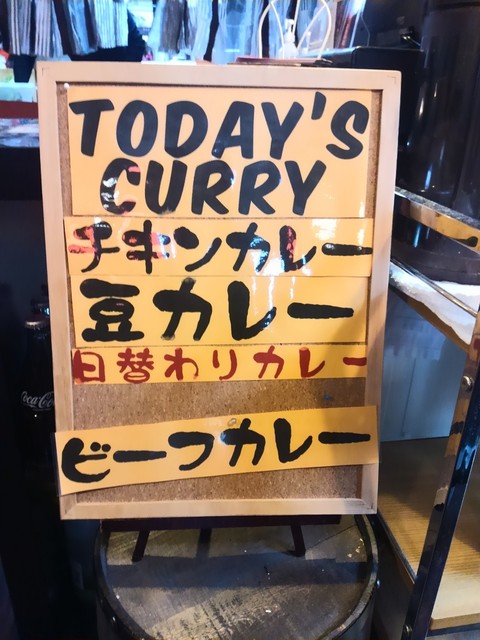 TODAY'S
CURRY
チキンカレー
豆カレー
日替わりカレー
ビーフカレー
Coca-Cola